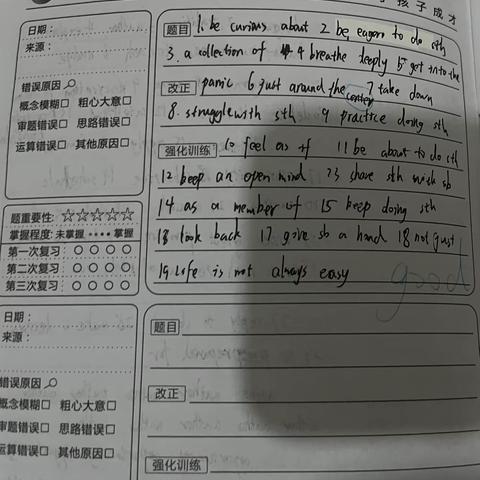 孩子成才
日期：
来源：
错误原因
概念模糊□ 粗心大意□
审题错误□ 思路错误□
运算错误□ 其他原因□
题重要性：☆☆☆☆☆
掌握程度：未掌握 •••• 掌握
第一次复习 ○ ○ ○ ○
第二次复习 ○ ○ ○ ○
第三次复习 ○ ○ ○ ○
题目 1. be curious about 2 be eager to do sth
3. a collection of 4 breathe deeply 5 get into the
改正 panic 6 just around the corner 7 take down
8. struggle with sth 9 practice doing sth
强化训练 10 feel as if 11 be about to do sth
12 keep an open mind 13 share sth with sb
14 as a member of 15 keep doing sth
16 look back 17 give sb a hand 18 not just
19. Life is not always easy
good
日期：
来源：
错误原因
概念模糊□ 粗心大意□
审题错误□ 思路错误□
运算错误□ 其他原因□
题目
改正
强化训练